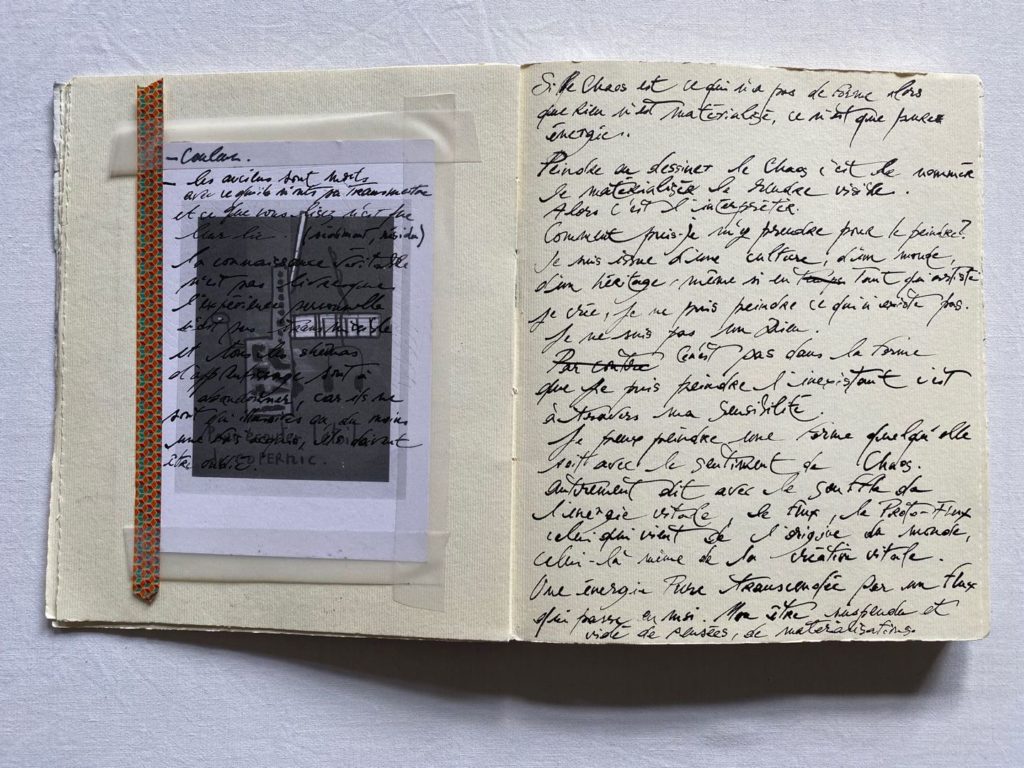 – Couleur.
– les anciens sont morts
avec ce qu'ils n'ont pu transmettre
et ce que vous lisez n'est que
leur lie (sédiment, résidu)
la connaissance véritable
n'est pas livresque
l'expérience personnelle
n'est pas transmissible
et tous les shémas
d'apprentissage sont à
abandonner, car ils ne
sont qu'illusoires ou du moins
une fois, doivent
être
COPERNIC.
Si le Chaos est ce qui n'a pas de forme alors
que Rien n'est matérialisé, ce n'est que pure
énergie.
Peindre ou dessiner le Chaos c'est le nommer
le matérialiser le rendre visible.
Alors c'est l'interpréter.
Comment puis-je m'y prendre pour le peindre?
Je suis issue d'une culture, d'un monde,
d'un héritage, même si en tant qu'artiste
je crée, je ne puis peindre ce qui n'existe pas.
Je ne suis pas un Dieu.
Par contre Ce n'est pas dans la forme
que je puis peindre l'inexistant c'est
à travers ma sensibilité.
Je peux peindre une forme quelqu'elle
soit avec le sentiment du Chaos.
autrement dit avec le souffle de
l'énergie vitale, le flux, le Proto-Flux
celui qui vient de l'origine du monde,
celui-là même de la création vitale.
Une énergie Pure transcendée par un flux
qui passe en moi. Mon être suspendu et
vide de pensées, de matérialisations.